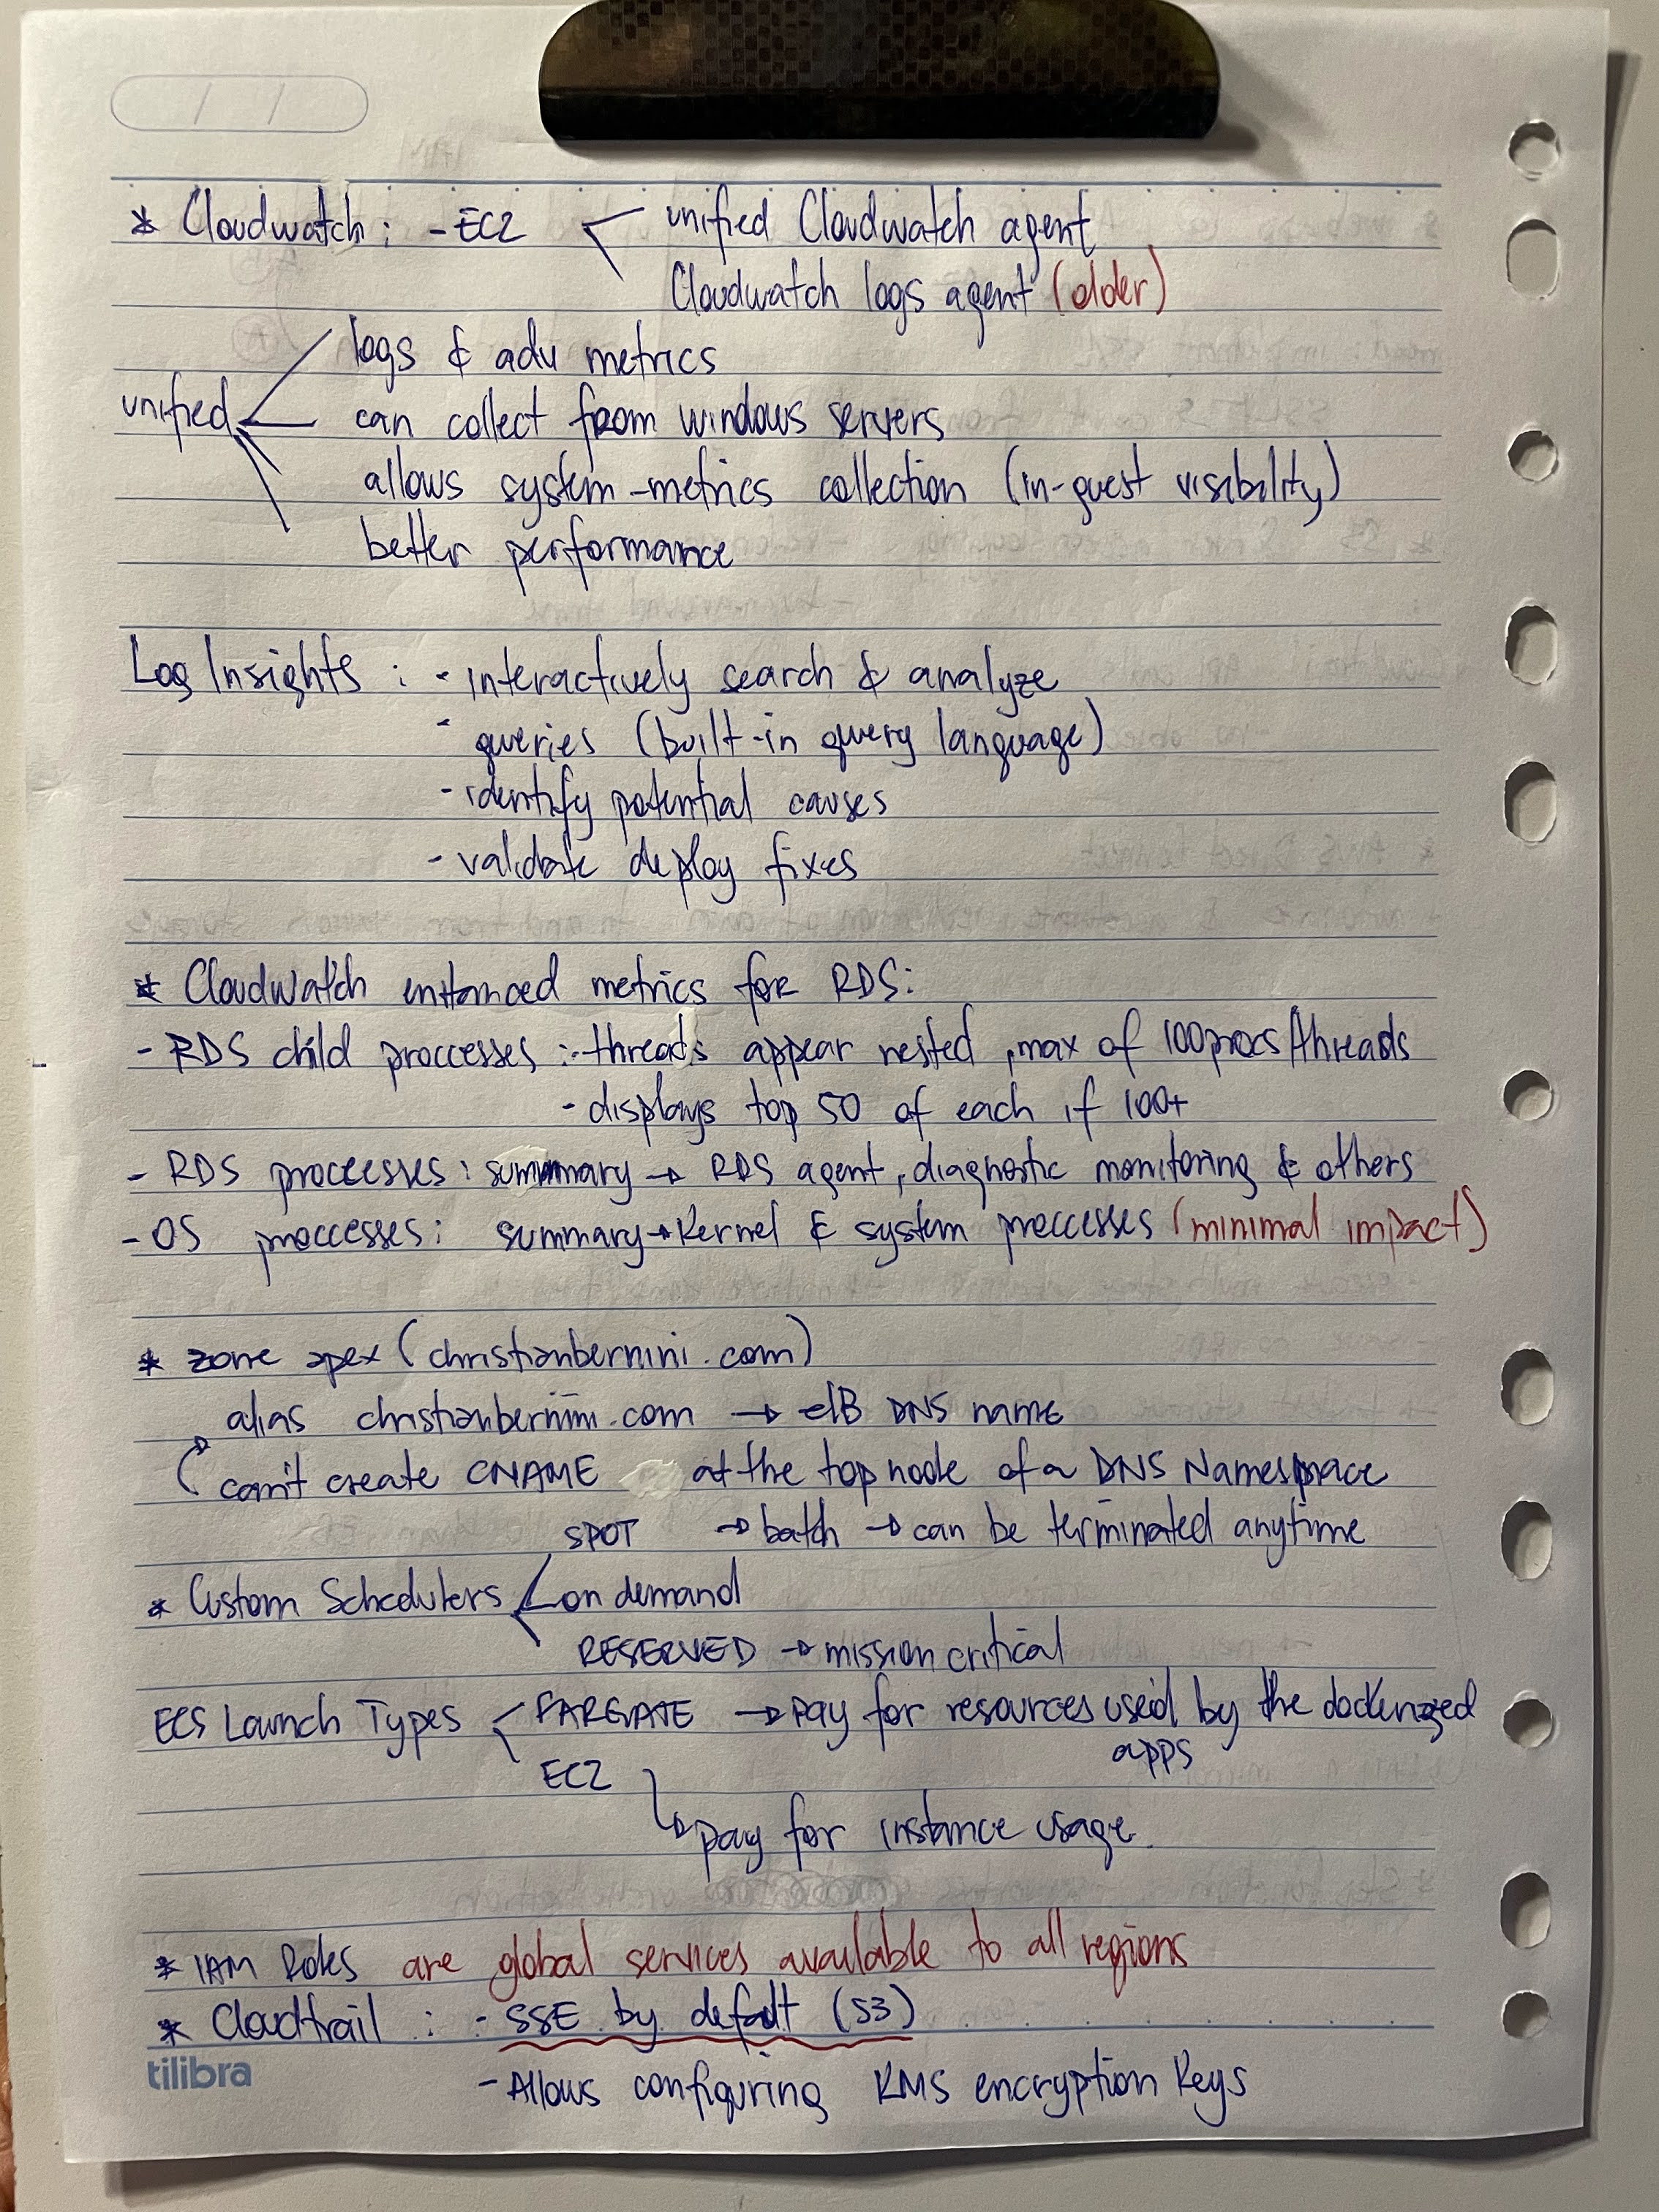 * Cloudwatch : - EC2 unified Cloudwatch agent
Cloudwatch logs agent (older)
logs & adv metrics
unified can collect from windows servers
allows system-metrics collection (in-guest visibility)
better performance
Log Insights : - interactively search & analyze
- queries (built-in query language)
- identify potential causes
- validate deploy fixes
* CloudWatch enhanced metrics for RDS:
- RDS child proccesses : - threads appear nested , max of 100procs/threads
- displays top 50 of each if 100+
- RDS proccesses : summary → RDS agent, diagnostic monitoring & others
- OS proccesses : summary → Kernel & system proccesses (minimal impact)
* zone apex (christianbernini.com)
alias christianbernini.com → elB DNS name
can't create CNAME at the top node of a DNS Namespace
SPOT → batch → can be terminated anytime
* Custom Schedulers on demand
RESERVED → mission critical
ECS Launch Types FARGATE → pay for resources used by the dockerized
apps
EC2
↳ pay for instance usage.
* IAM Roles are global services available to all regions
* Cloudtrail : - SSE by defalt (S3)
tilibra
- Allows configuring KMS encryption keys